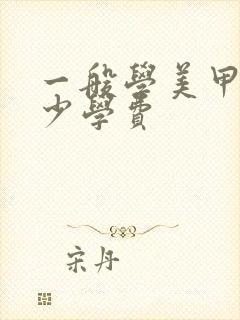 一般學美甲
少學費
宋丹